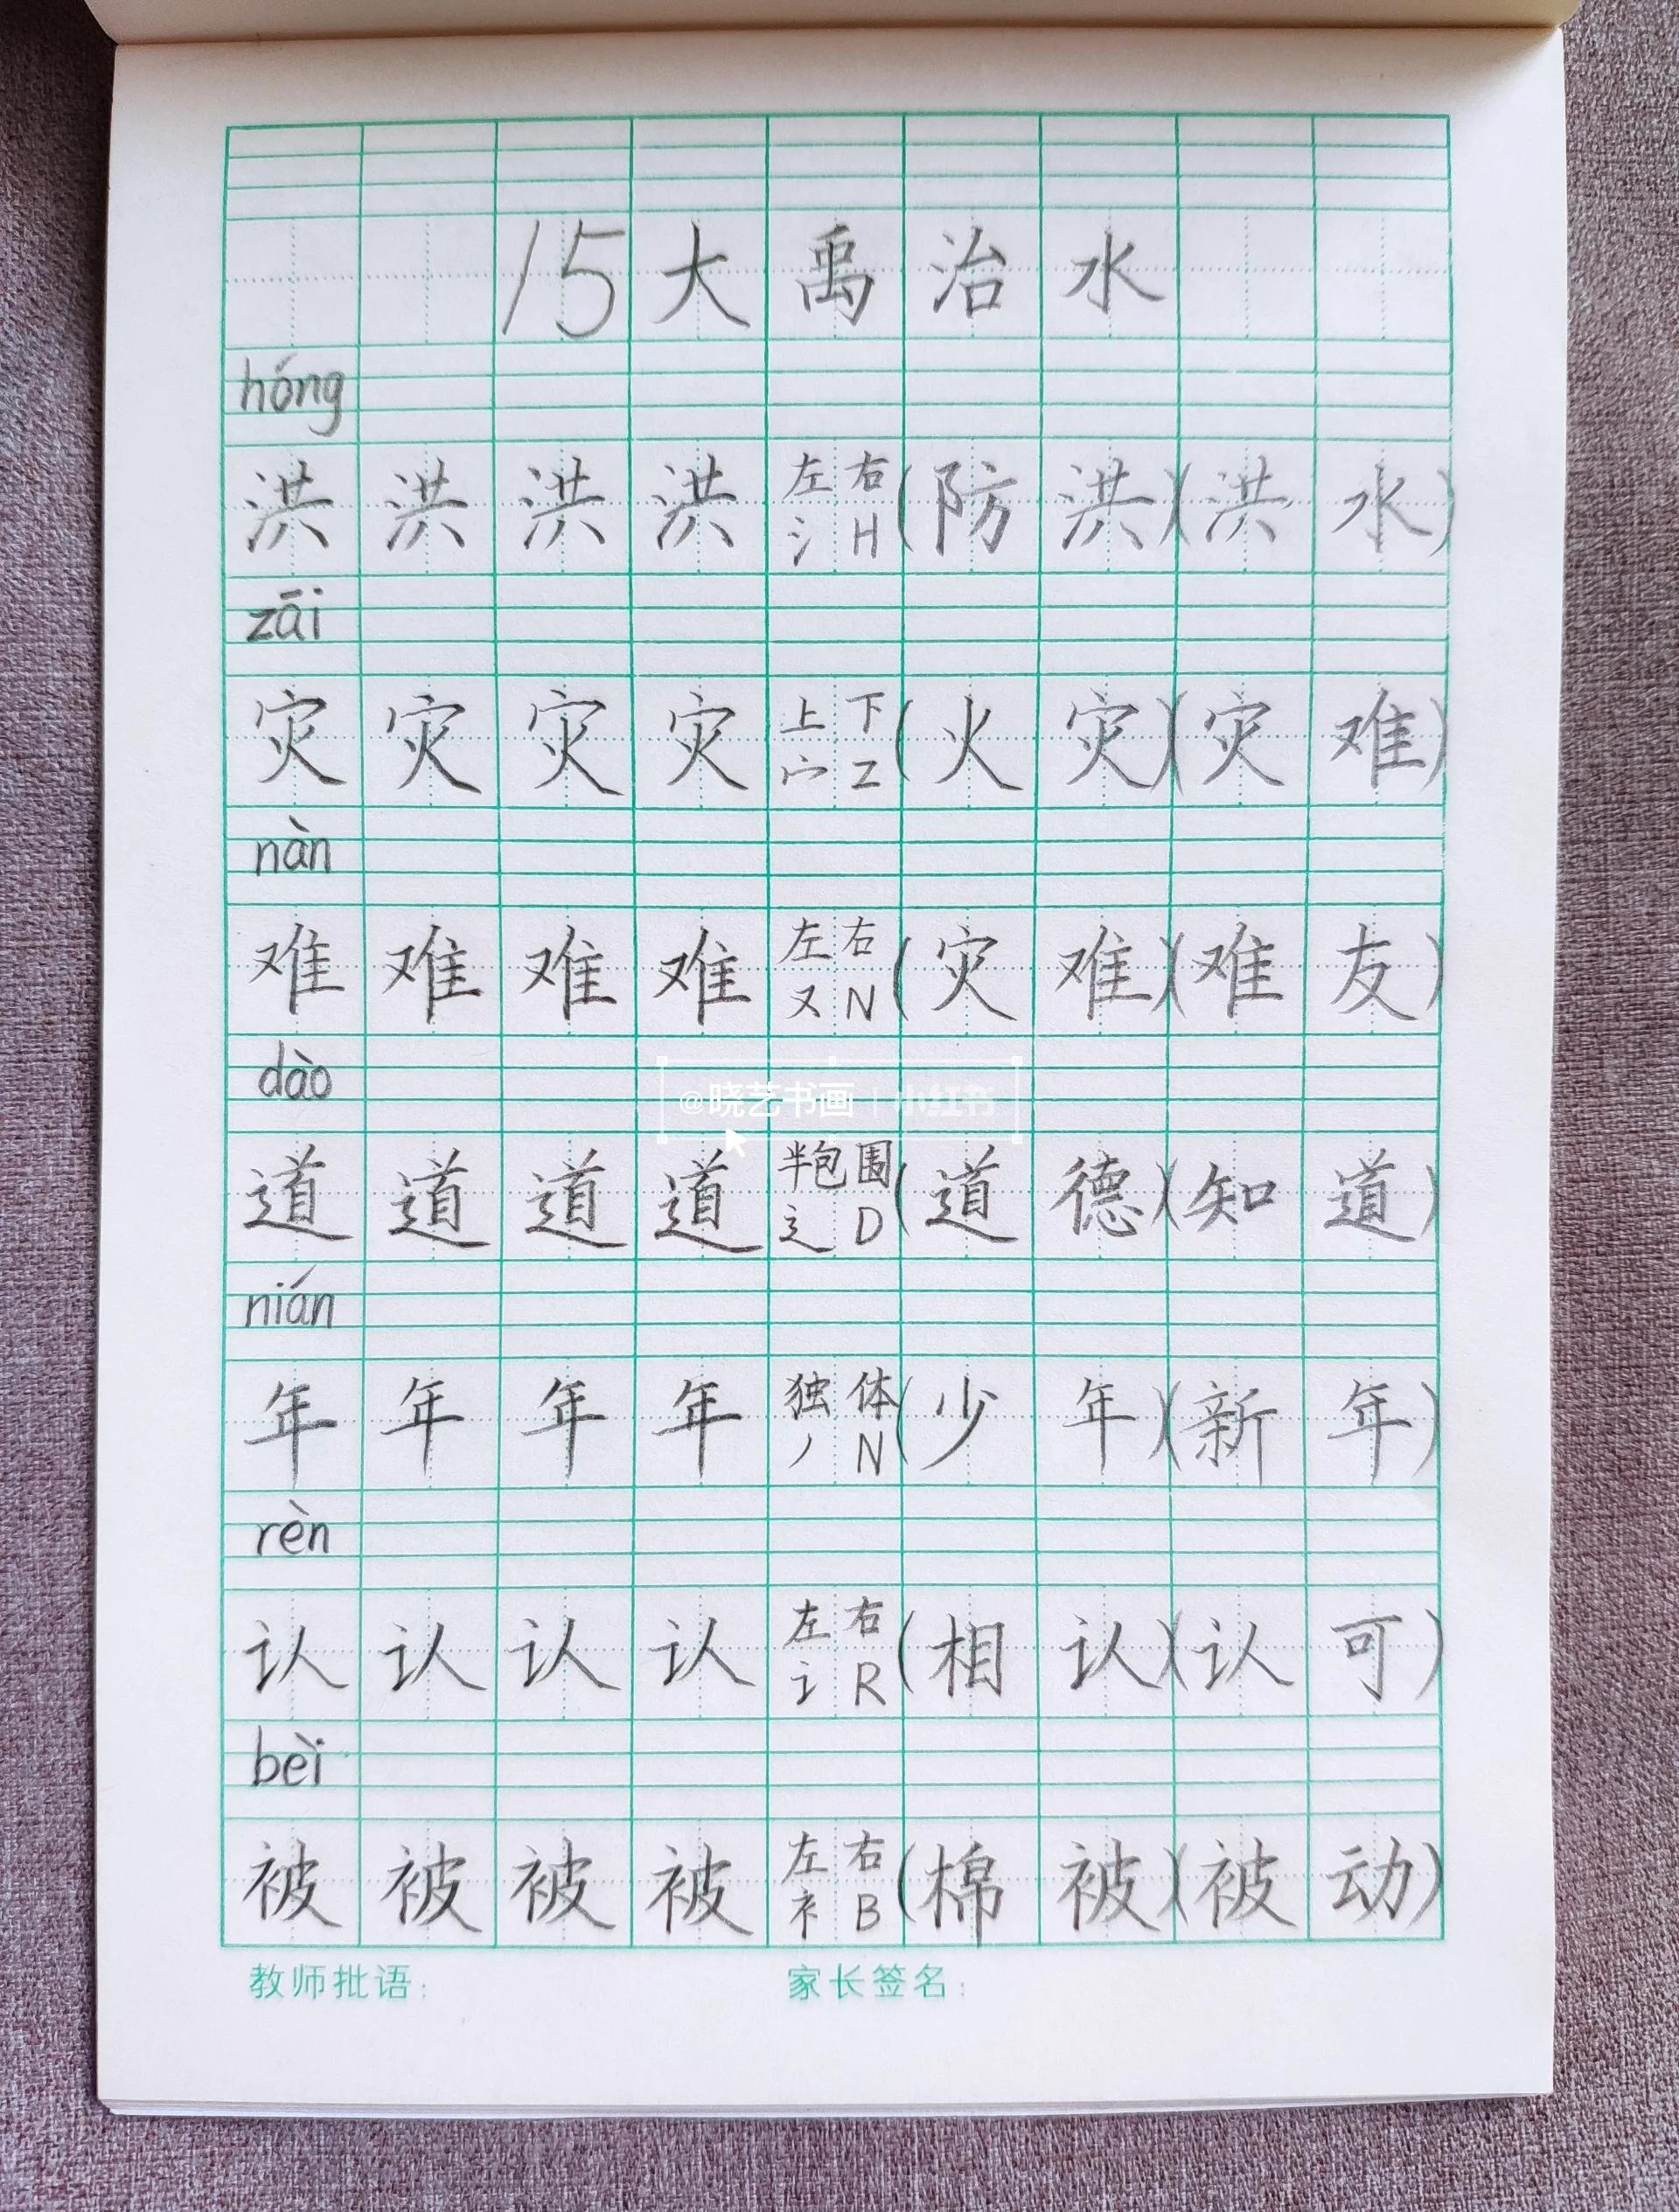 15大禹治水
hóng
洪 洪 洪 洪 左右 氵 H (防洪)(洪水)
zāi
灾 灾 灾 灾 上下 宀 Z (火灾)(灾难)
nàn
难 难 难 难 左右 又 N (灾难)(难友)
dào
@晓艺书画 | 小红书
道 道 道 道 半包围 辶 D (道德)(知道)
nián
年 年 年 年 独体 丿 N (少年)(新年)
rèn
认 认 认 认 左右 讠 R (相认)(认可)
bèi
被 被 被 被 左右 衤 B (棉被)(被动)
教师批语: 家长签名: